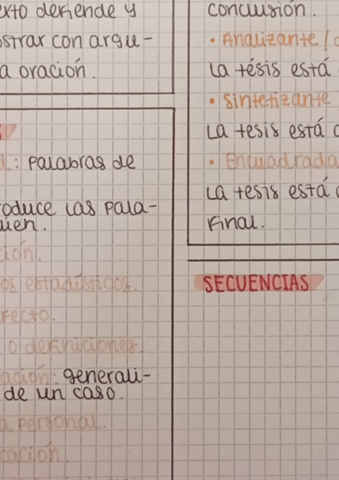 exto defiende y
ostrar con argu-
a oración.
: Palabras de
oduce las pala-
uien.
ión.
os estadísticos.
fecto.
o definiciones.
ación: generali-
de un caso.
a personal.
tación.
conclusión.
• Analizante /
La tésis está
• Sintetizante
La tesis está
• Encuadrada
La tesis está
Final.
SECUENCIAS